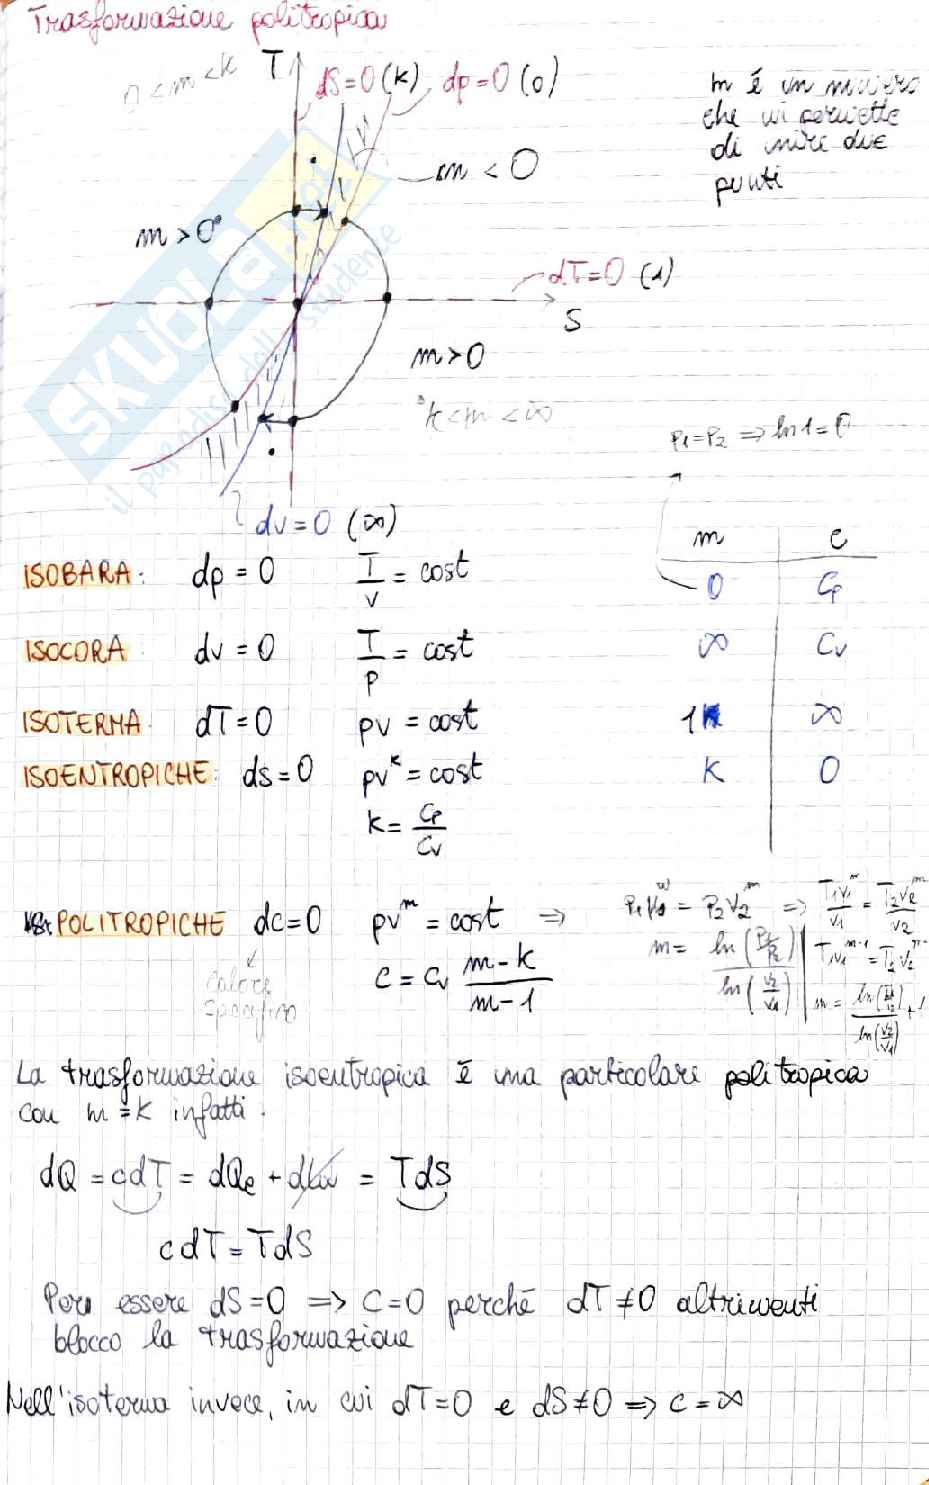 Trasformazione politropica
0 < m < k
T
dS=0 (k)
dp=0 (0)
m é un numero
che mi permette
di unire due
punti
m < 0
m > 0
dT=0 (1)
S
m>0
k<m<∞
dv=0 (∞)
P1=P2 ⇒ ln1=0
SKUOLA.net
il paradiso dello studente
m c
ISOBARA: dp=0 T/v = cost 0 Cp
ISOCORA: dv=0 T/p = cost ∞ Cv
ISOTERMA: dT=0 pv = cost 1 ∞
ISOENTROPICHE: ds=0 pv^k = cost k 0
k = Cp/Cv
POLITROPICHE dc=0 pv^m = cost ⇒ P1V1^m = P2V2^m ⇒ T1V1^m/V1 = T2V2^m/V2
calore
specifico
c = Cv (m-k)/(m-1)
m = ln(P1/P2)/ln(V2/V1)
T1V1^m-1 = T2V2^m-1
La trasformazione isoentropica è una particolare politropica
con m=k infatti:
dQ = cdT = dQe + dLw = TdS
cdT = TdS
Però essere dS=0 ⇒ C=0 perché dT≠0 altrimenti
blocco la trasformazione
Nell'isoterma invece, in cui dT=0 e dS≠0 ⇒ c=∞